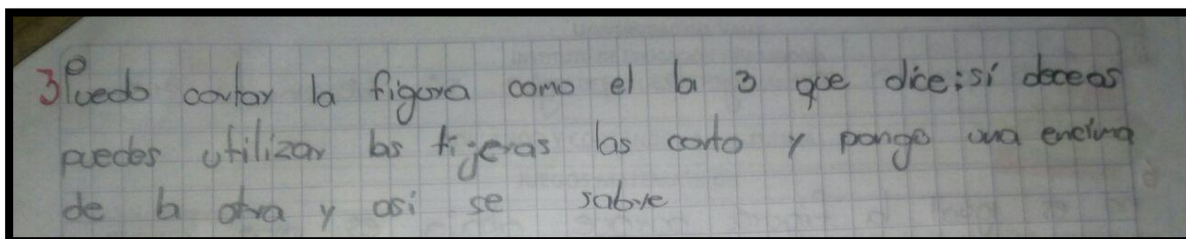 3 Puedo cortar la figura como el la 3 que dice: si deceas
puedes utilizar las tigeras las corto y pongo una encima
de la otra y asi se sabre